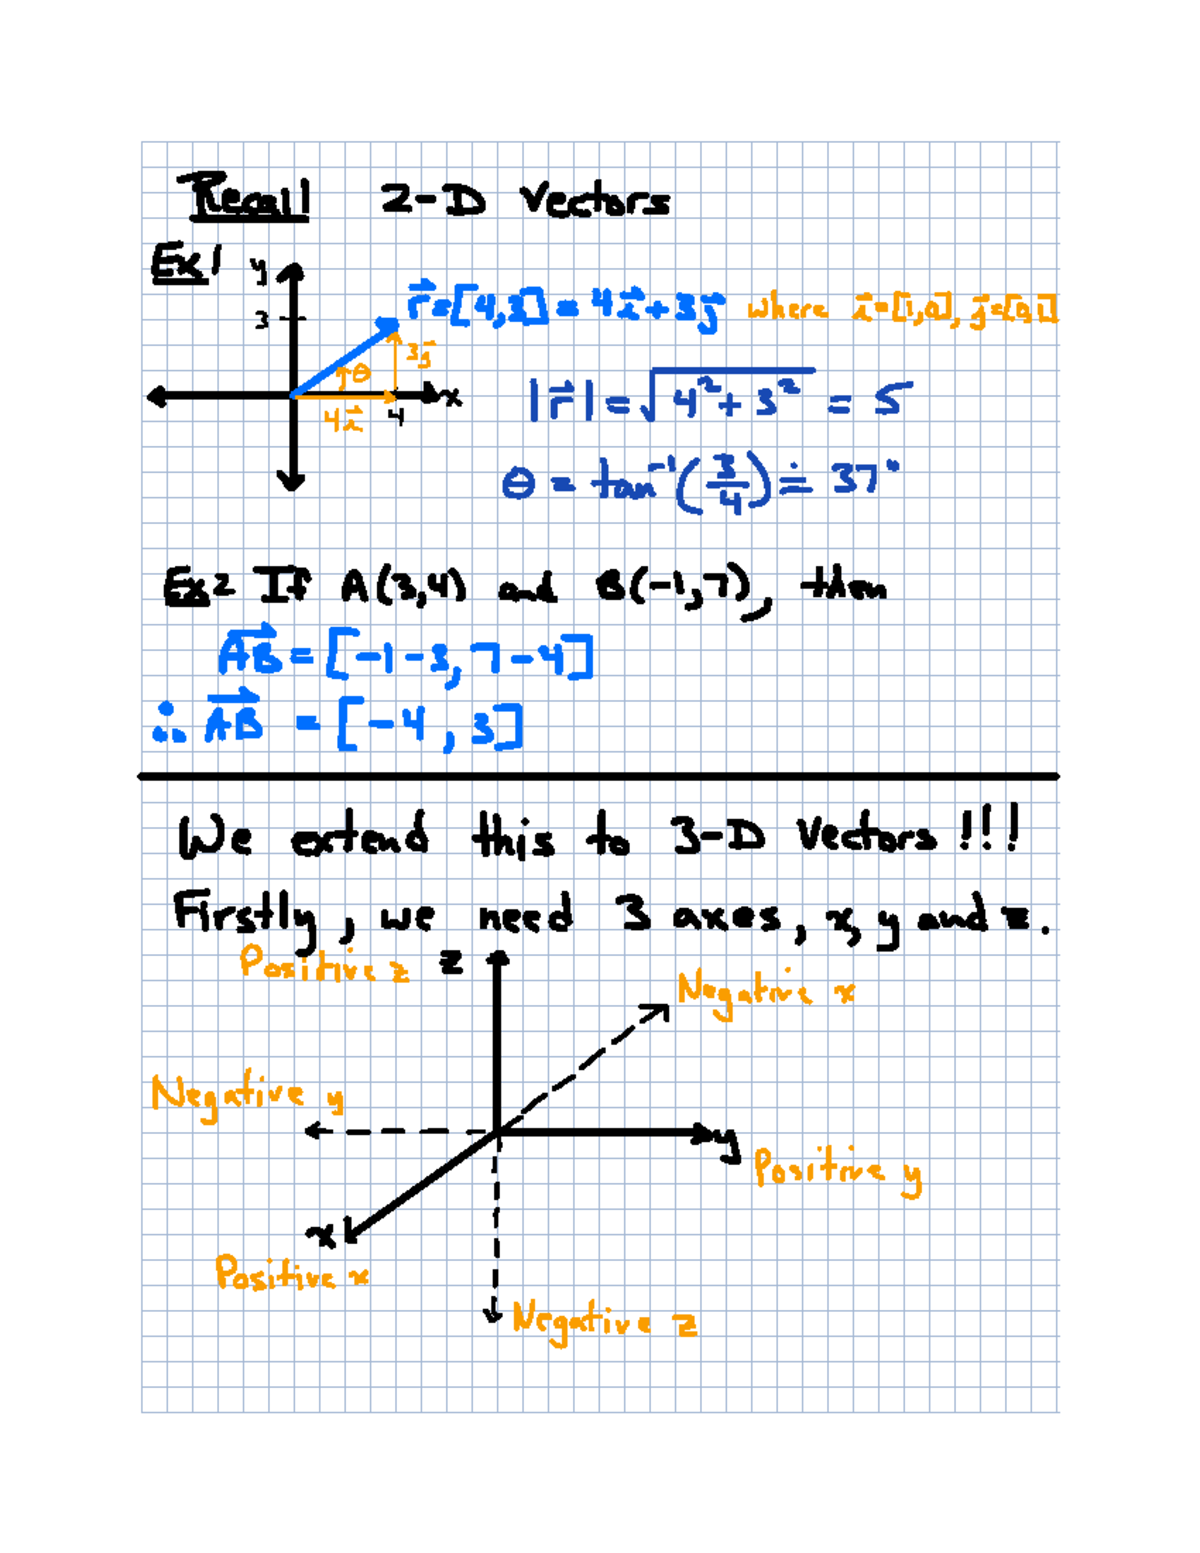 Recall 2-D Vectors
Ex1
y
3
r⃗=[4,3] = 4i⃗+3j⃗ where i⃗=[1,0], j⃗=[0,1]
θ 3j⃗
x
4i⃗ 4
|r⃗| = √(4²+3²) = 5
θ = tan⁻¹(3/4) ≐ 37°
Ex2 If A(3,4) and B(-1,7), then
AB⃗ = [-1-3, 7-4]
∴ AB⃗ = [-4, 3]
We extend this to 3-D Vectors !!!
Firstly, we need 3 axes, x, y and z.
Positive z z
Negative x
Negative y
y
Positive y
x
Positive x
Negative z